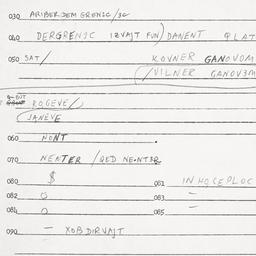 030 ARIBERJEM GRENIC/3G
040 DERGRENIC IZVAJT FUN) DANENT QLAT
050 SAT/ KOVNER GANOVOM
(/VILNER GANOVEM
KOGEVE/
(JANEVE
060 NONT .
070 NEATER /QED NENTER
080 $ 081 IN HOCEPLOC
082 O 083 –
084 O 085 –
090 – XOBDIRVAJT